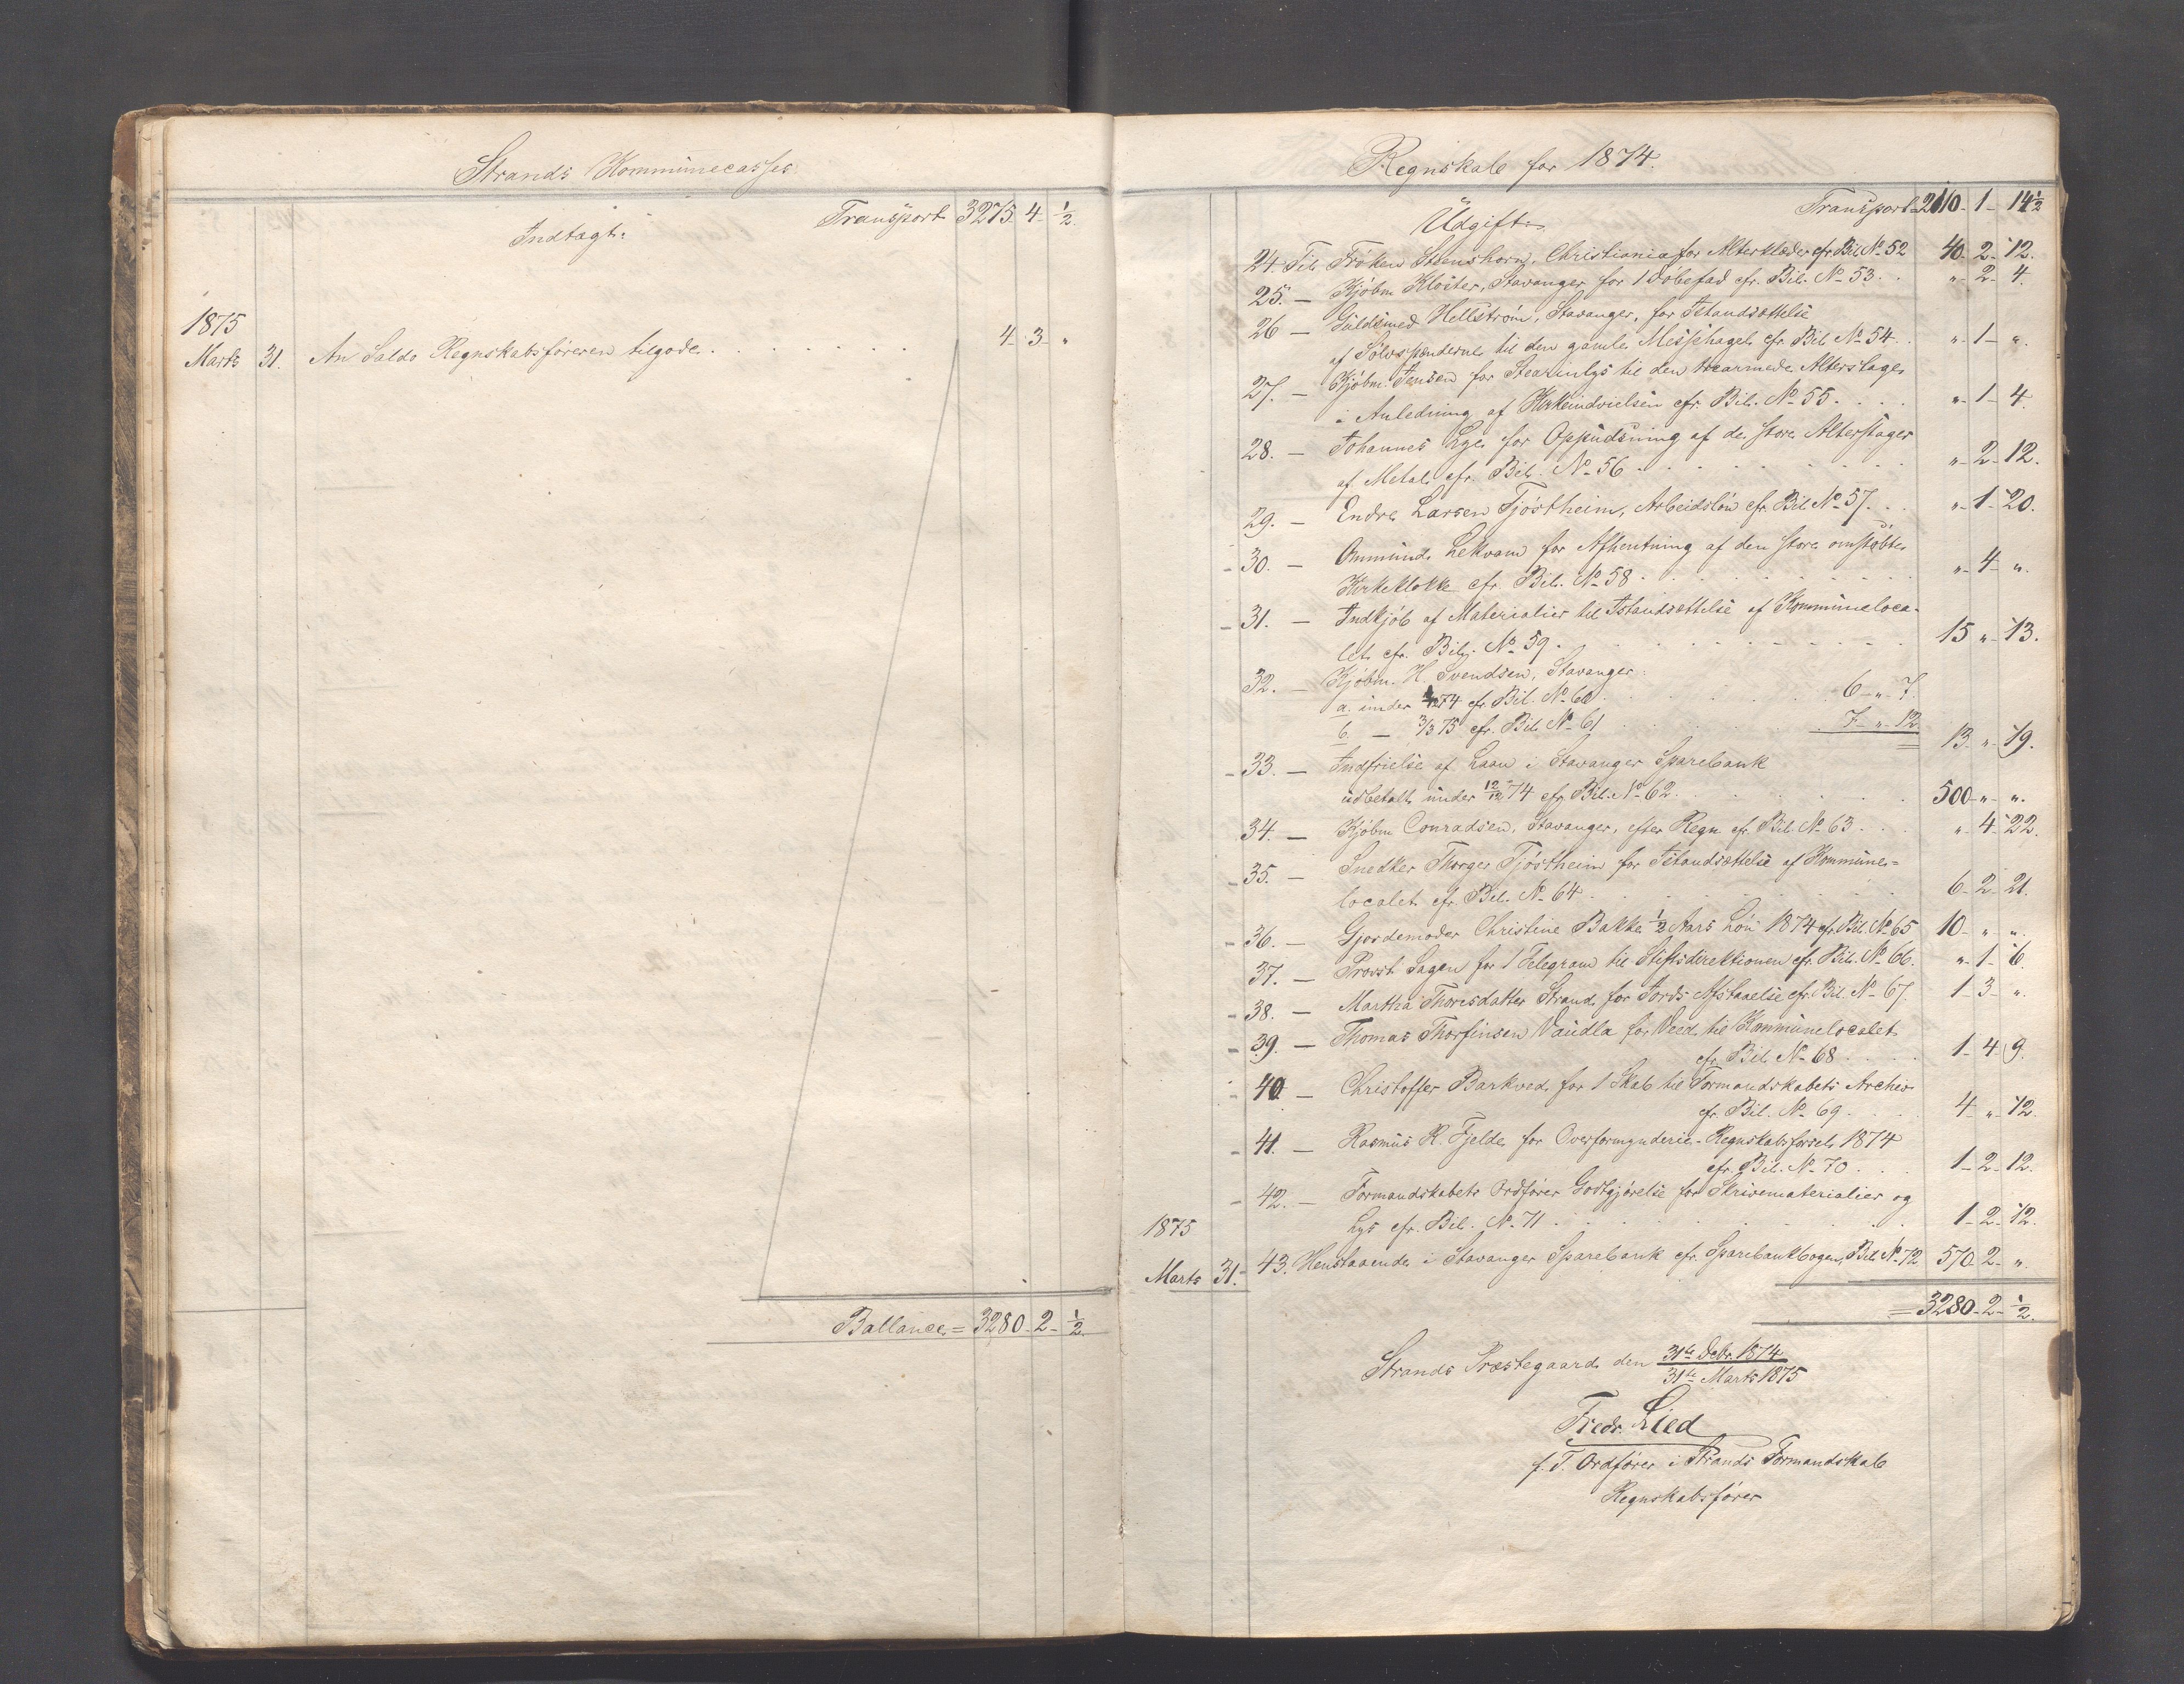 Strands Kommunecasses
Indtægt.
Transport 3275 - 4 - 1/2.
1875
Marts 31. An Saldo Regnskabsføreren tilgode . . . . . . . . 4 - 3 - "
Ballance = 3280 - 2 - 1/2.
Regnskab for 1874.
Udgift.
Transport - 2110 - 1 - 14 1/2
24. Til Frøken Steenshorn, Christiania for Alterklæder cfr. Bil. No 52 40 - 2 - 12.
25. — Kjøbm. Kloster, Stavanger for 1 Døbefad cfr. Bil. No 53 . . " - 2 - 4.
26 — Guldsmed Hellstrøm, Stavanger, for Istandsættelse
af Sølvspænderne til den gamle Messehagel cfr. Bil. No 54 . . " - 1 - "
27. — Kjøbm. Jensen for Stearinlys til den trearmede Alterstage
i Anledning af Kirkeindvielsen cfr. Bil. No 55 . . . . " - 1 - 4.
28. — Johannes Lye for Oppudsning af de store Alterstager
af Metal cfr. Bil. No 56 . . . . . . . . " - 2 - 12.
29. — Endre Larsen Tjøstheim, Arbeidsløn cfr. Bil. No 57. . . " - 1 - 20.
30. — Ommund Lekvam for Afhentning af den store omstøbte
Kirkeklokke cfr. Bil. No 58 . . . . . . . . " - 4 - "
31. — Indkjøb af Materialier til Istandsættelse af Kommuneloca-
let cfr. Bil. No 59 . . . . . . . . 15 - " - 13.
32. — Kjøbm. H. Svendsen, Stavanger.
a. under 74 cfr. Bil. No 60 . . . . 6 - " - 7.
b. — 3/3 75 cfr. Bil. No 61 . . . . 7 - " - 12 13 - " - 19.
33. — Indfrielse af Laan i Stavanger Sparebank
udbetalt under 12/12 74 cfr. Bil. No 62 . . . . . . 500 - " - "
34. — Kjøbm. Conradsen, Stavanger, efter Regn. cfr. Bil. No 63 . . . " - 4 - 22.
35. — Snedker Thorger Tjøstheim for Istandsættelse af Kommune=
localet cfr. Bil. No 64 . . . . . . . . 6 - 2 - 21.
36. — Gjordemoder Christine Bakke 1/2 Aars Løn 1874 cfr. Bil. No 65 10 - " - "
37. — Provst Sagen for 1 Telegram til Stiftsdirektionen cfr. Bil. No 66. " - 1 - 6.
38. — Martha Thoresdatter Strand for Jords Afstaaelse cfr. Bil. No 67. 1 - 3 - "
39. — Thomas Thorfinsen Vaudla for Veed til Kommunelocalet
cfr. Bil. No 68 . . . . 1 - 4 - 9.
40 — Christoffer Barkved for 1 Skab til Formandskabets Archiv
cfr. Bil. No 69 . . . . 4 - " - 12.
41. — Rasmus R. Fjelde for Overformynderie-Regnskabsførsel 1874
cfr. Bil. No 70 . . . 1 - 2 - 12.
42. — Formandskabets Ordfører Godtgjørelse for Skrivematerialier og
Lys cfr. Bil. No 71 . . . . . . . . 1 - 2 - 12.
1875
Marts 31. 43. Henstaaende i Stavanger Sparebank cfr. Sparebankbogen, Bil. No 72 570 - 2 - "
= 3280 - 2 - 1/2.
Strands Præstegaard den 31te Decbr. 1874
31te Marts 1875
Fredr. Lied
f. T. Ordfører i Strands Formandskab
Regnskabsfører